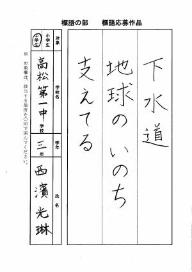 標語の部 標語応募作品
下水道
地球のいのち
支えてる
対象
小学生
中学生
学校名
高松第一中
学校
学年
三
年
氏名
西濱光琳